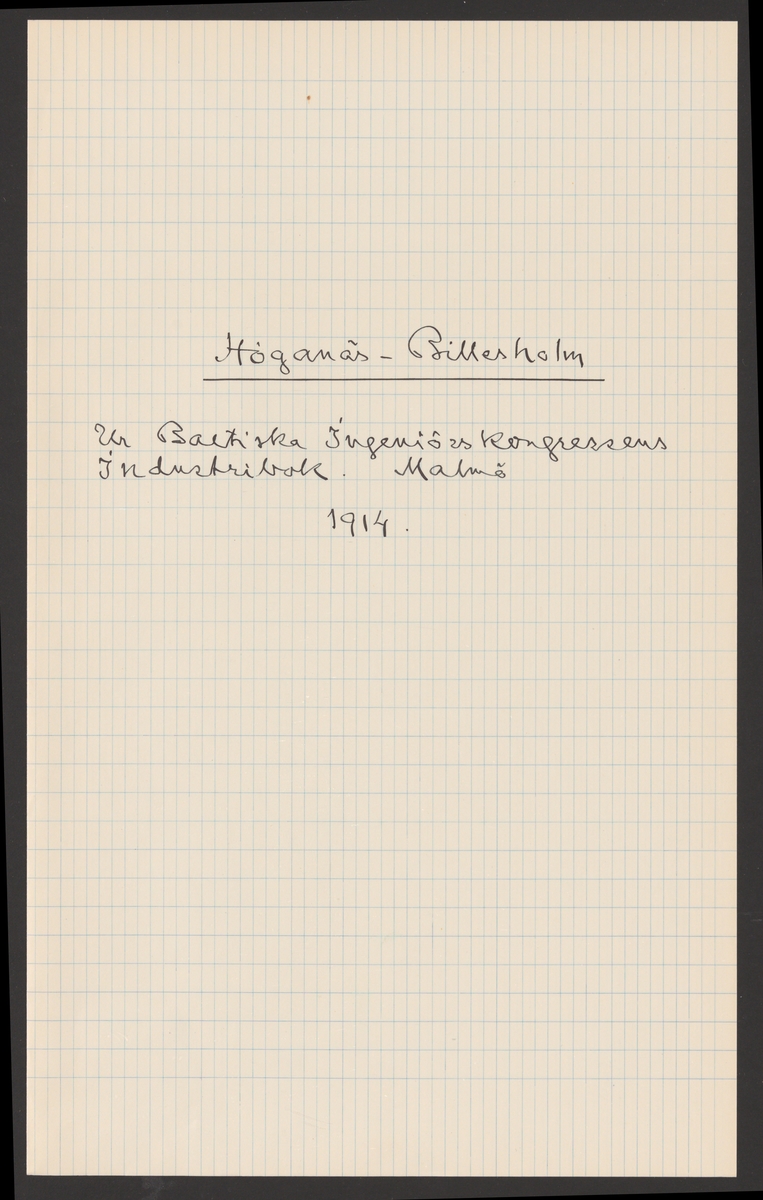 Höganäs - Billesholm
Ur Baltiska Ingeniörskongressens
Industribok. Malmö
1914.